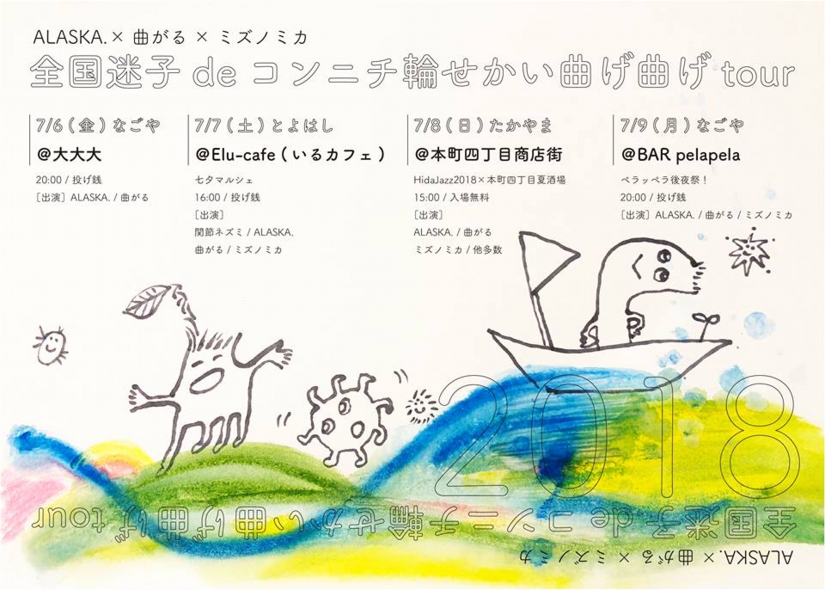 ALASKA. × 曲がる × ミズノミカ
全国迷子 de コンニチ輪せかい曲げ曲げ tour
7/6 ( 金 ) なごや
@大大大
20:00 / 投げ銭
［出演］ALASKA. / 曲がる
7/7 ( 土 ) とよはし
@Elu-cafe ( いるカフェ )
七夕マルシェ
16:00 / 投げ銭
［出演］
関節ネズミ / ALASKA.
曲がる / ミズノミカ
7/8 ( 日 ) たかやま
@本町四丁目商店街
HidaJazz2018×本町四丁目夏酒場
15:00 / 入場無料
［出演］
ALASKA. / 曲がる
ミズノミカ / 他多数
7/9 ( 月 ) なごや
@BAR pelapela
ペラッペラ後夜祭！
20:00 / 投げ銭
［出演］ALASKA. / 曲がる / ミズノミカ
2018
全国迷子 de コンニチ輪せかい曲げ曲げ tour
ALASKA. × 曲がる × ミズノミカ